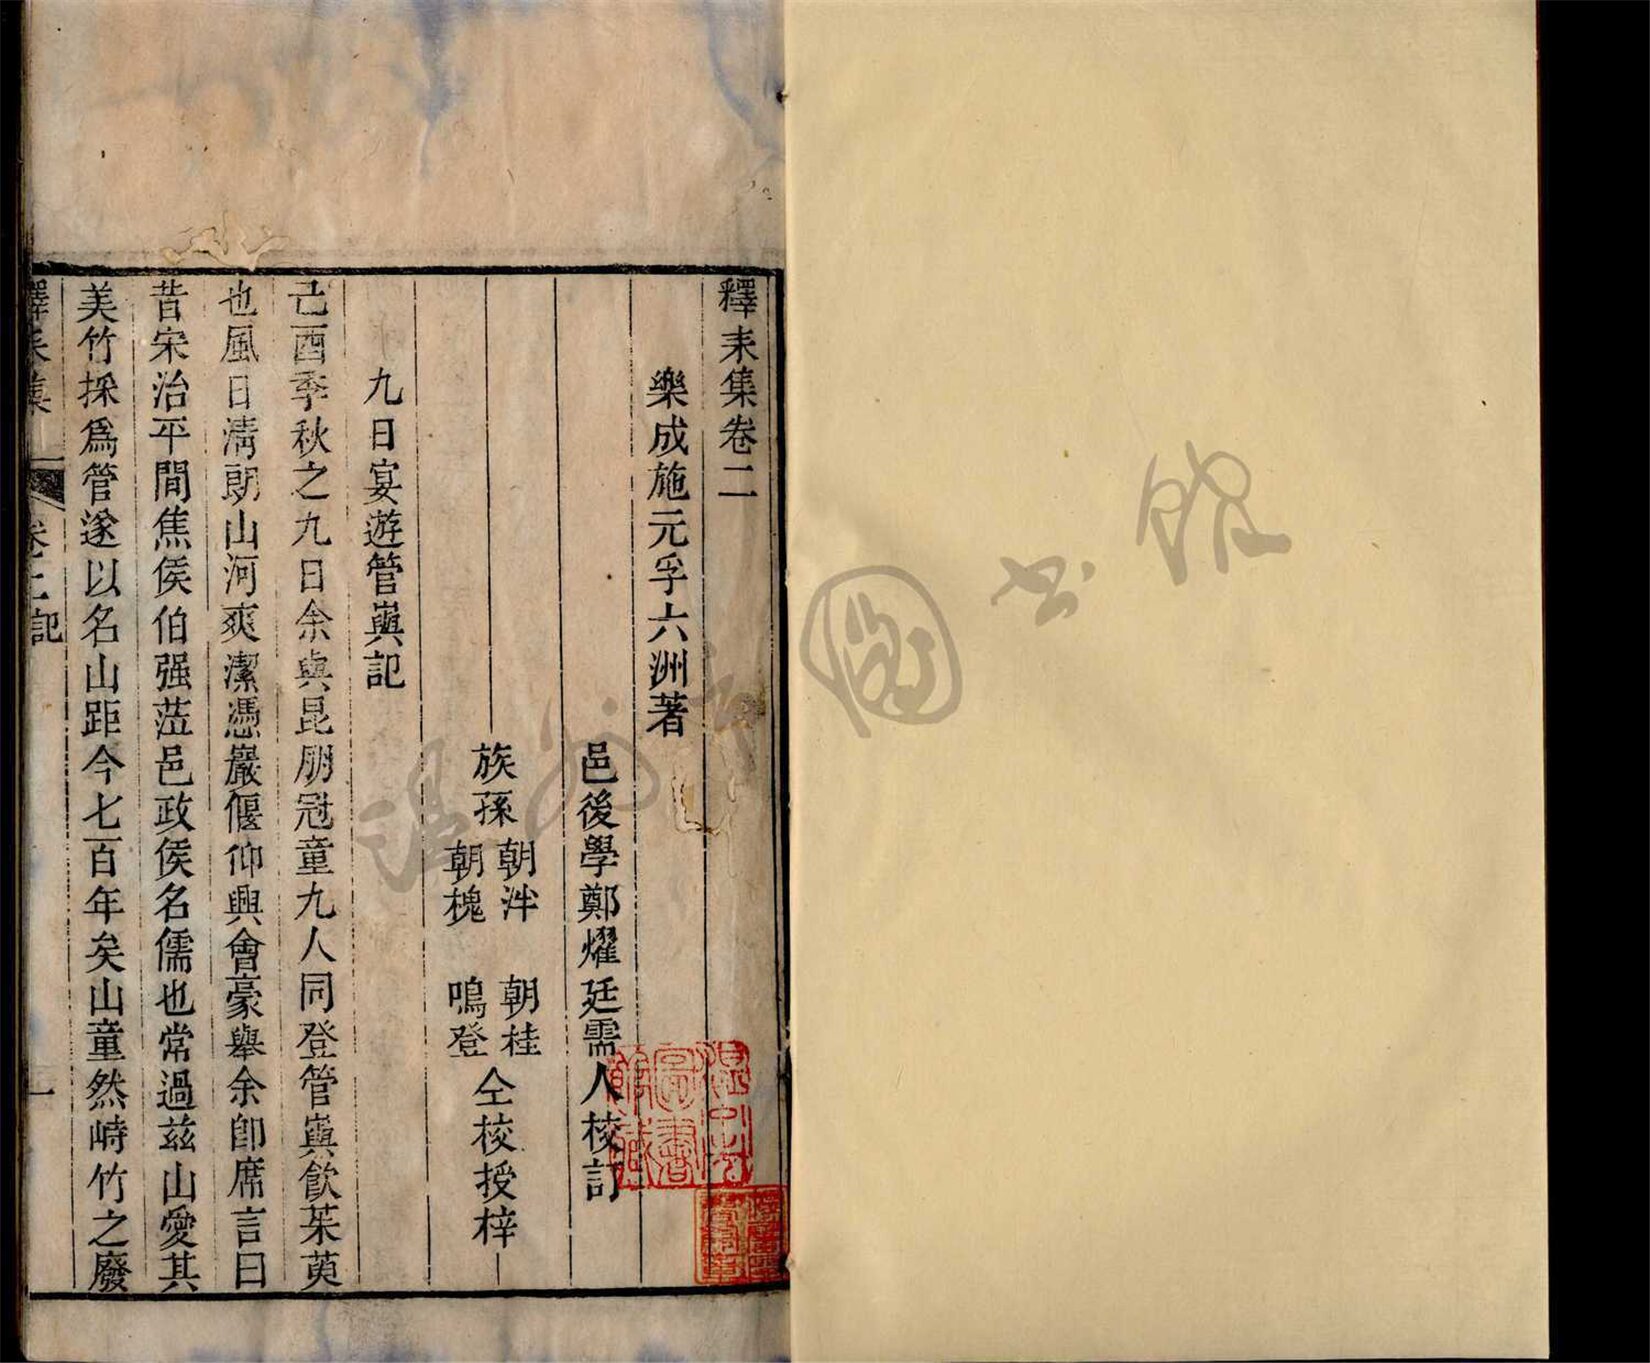 釋耒集卷二
樂成施元孚六洲著
邑後學鄭燿廷需人校訂
族孫 朝泮 朝桂 朝槐 鳴登 仝校授梓
九日宴遊管嶴記
己酉季秋之九日余與昆朋冠童九人同登管嶴飲茱萸
也風日淸朗山河爽潔憑巖偃仰興會豪舉余卽席言曰
昔宋治平間焦侯伯强蒞邑政侯名儒也常過茲山愛其
美竹採爲管遂以名山距今七百年矣山童然峙竹之廢
釋耒集 卷二記 一
溫州市圖書館
溫州市圖書館藏